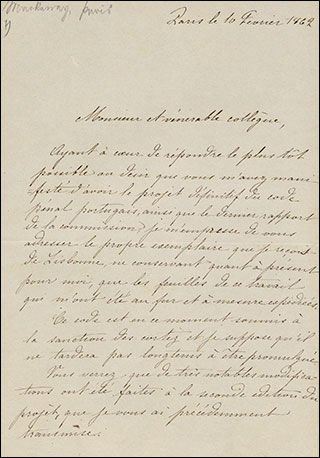 Paris
Paris le 10 Février 1862
Monsieur et vénérable collègue,
Ayant à cœur de répondre le plus tôt
possible au désir que vous m'avez mani
festé d'avoir le projet définitif du code
pénal portugais, ainsi que le dernier rapport
de la commission, je m'empresse de vous
adresser le propre exemplaire que je reçois
de Lisbonne, ne conservant quant à présent
pour moi, que les feuilles de ce travail
qui m'ont été au fur et à mesure expédiées.
Ce code est en ce moment soumis à
la sanction des cortez et je suppose qu'il
ne tardera pas longtems à être promulgué.
Vous verrez que de très notables modifica
tions ont été faites à la seconde édition du
projet, que je vous ai précédemment
transmise.